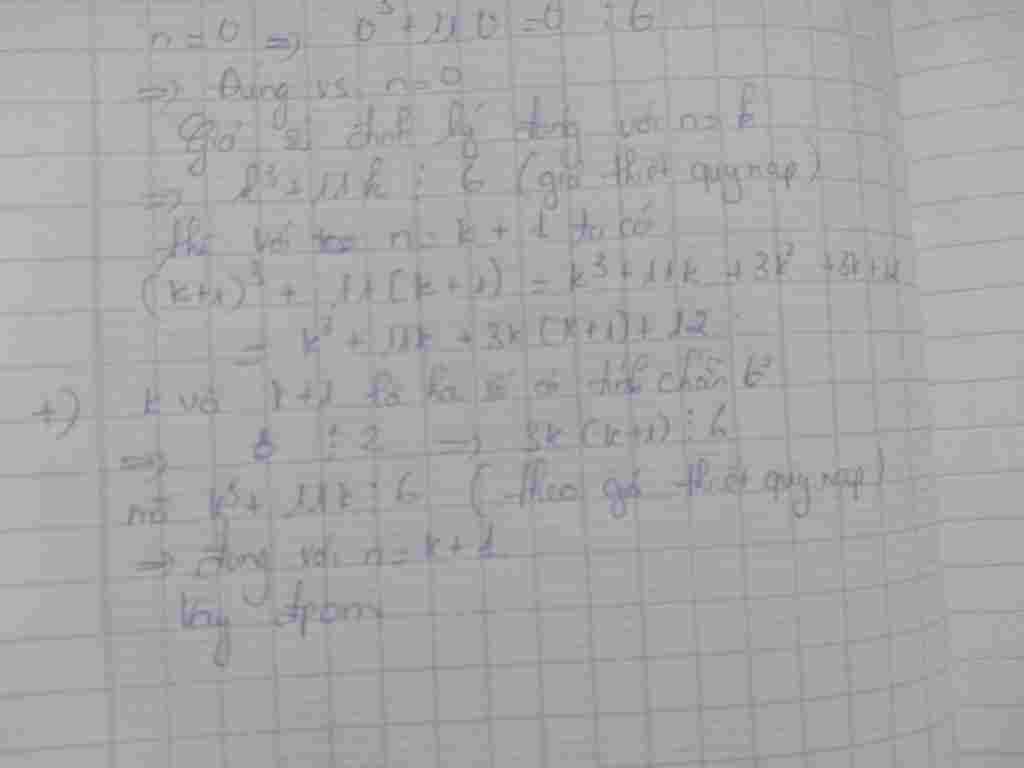 n = 0 => 0³ + 11.0 = 0 ⋮ 6
=> Đúng vs n = 0
Giả sử định lý đúng với n = k
=> k³ + 11k ⋮ 6 (giả thiết quy nạp)
thì với n = k + 1 ta có
(k+1)³ + 11(k+1) = k³ + 11k + 3k² + 3k + 12
= k³ + 11k + 3k(k+1) + 12
+) k và k+1 là hai số có tính chẵn lẻ
=> ⋮ 2 => 3k(k+1) ⋮ 6
mà k³ + 11k ⋮ 6 (theo giả thiết quy nạp)
=> đúng với n = k + 1
Vậy đpcm